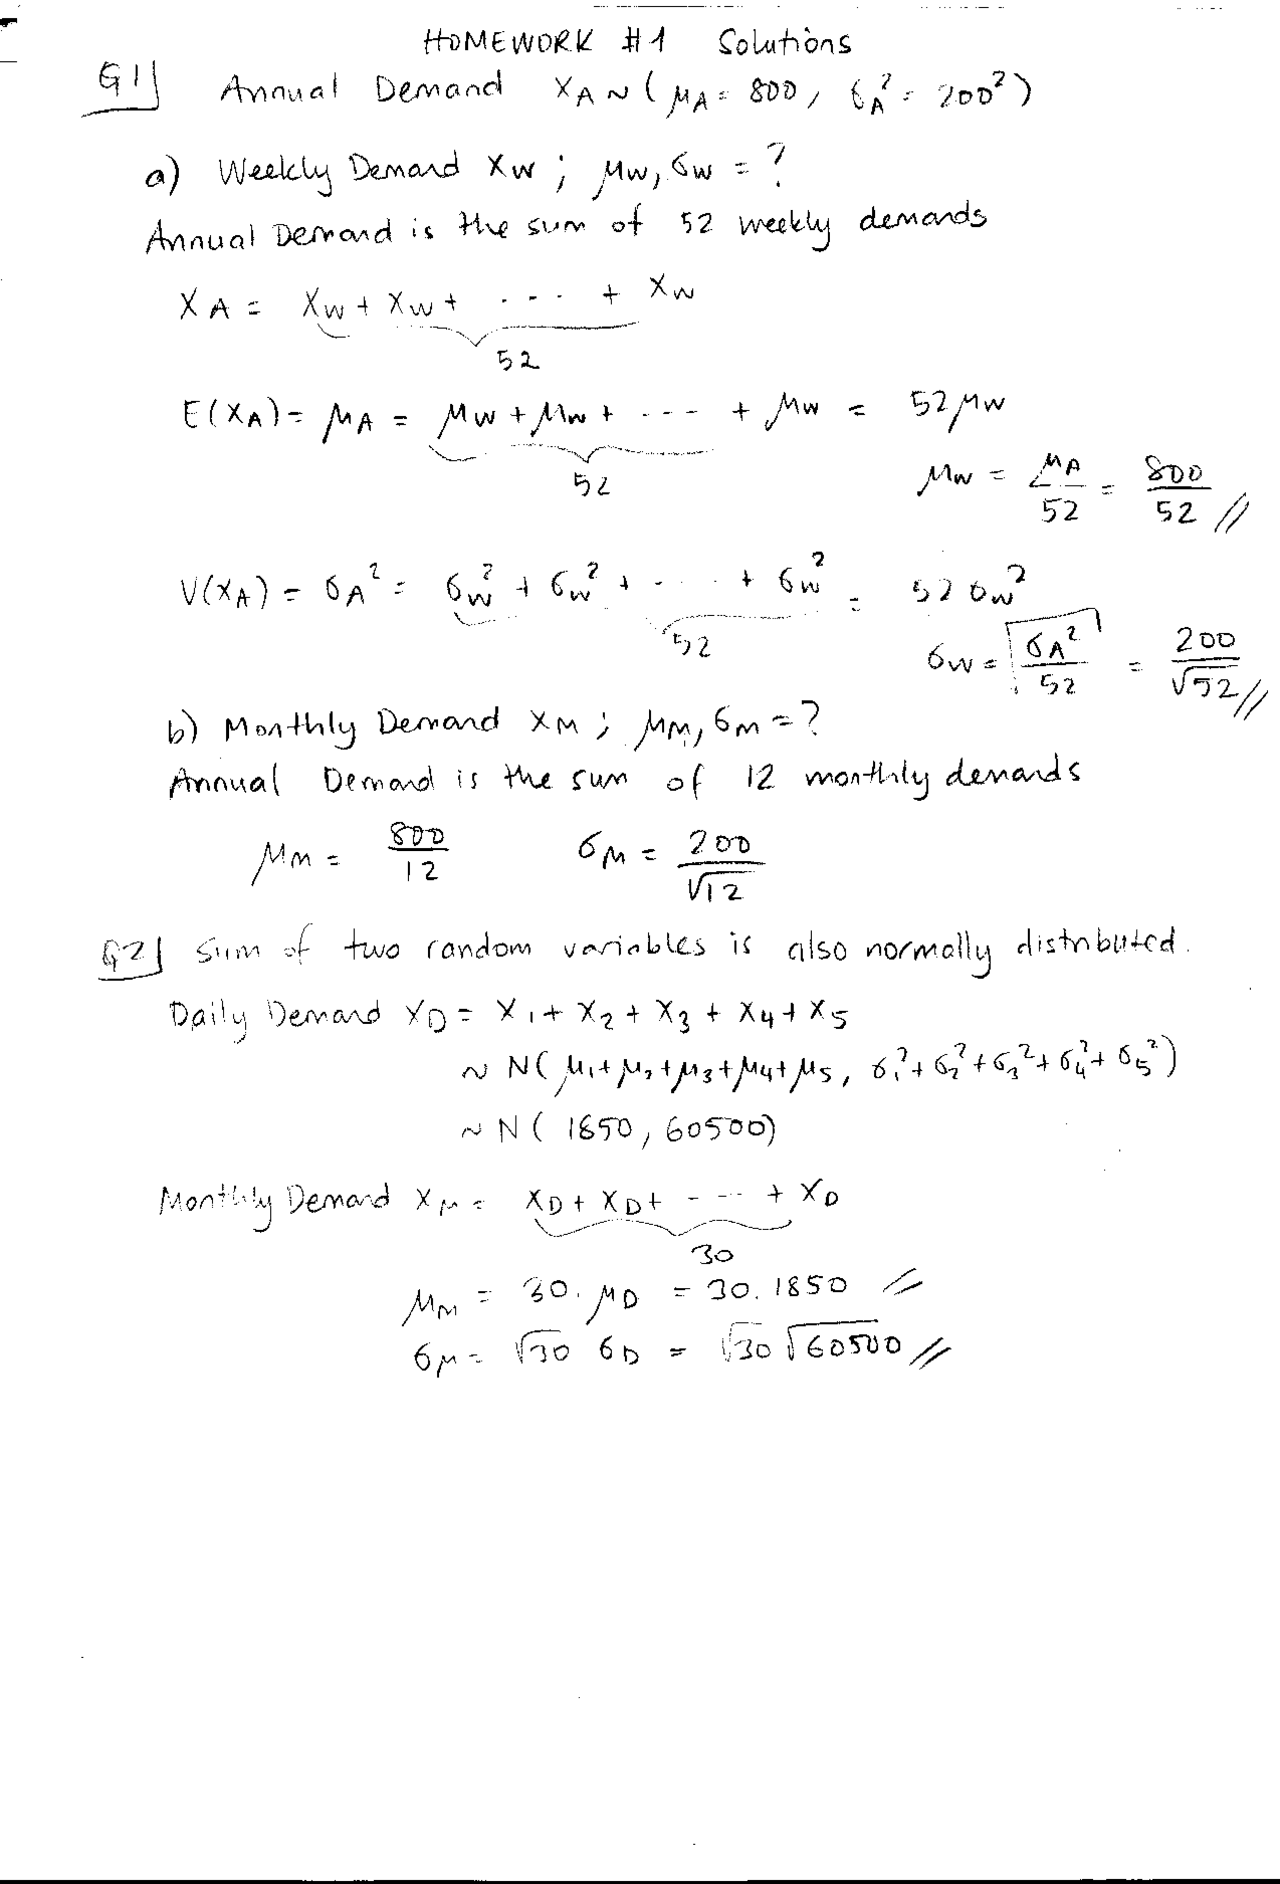 HOMEWORK #1 Solutions
Q1) Annual Demand XA ~ ( μA = 800, σA² = 200² )
a) Weekly Demand Xw ; μw, σw = ?
Annual Demand is the sum of 52 weekly demands
XA = Xw + Xw + ---- + Xw
52
E(XA) = μA = μw + μw + ---- + μw = 52μw
52
μw = μA/52 = 800/52 //
V(XA) = σA² = σw² + σw² + ---- + σw² = 52σw²
52
σw = √(σA²/52) = 200/√52 //
b) Monthly Demand XM ; μM, σM = ?
Annual Demand is the sum of 12 monthly demands
μM = 800/12 σM = 200/√12
Q2) Sum of two random variables is also normally distributed.
Daily Demand XD = X1 + X2 + X3 + X4 + X5
~ N( μ1+μ2+μ3+μ4+μ5, σ1²+σ2²+σ3²+σ4²+σ5² )
~ N( 1850, 60500)
Monthly Demand XM = XD + XD + ---- + XD
30
μM = 30. μD = 30. 1850 //
σM = √30 σD = √30 √60500 //